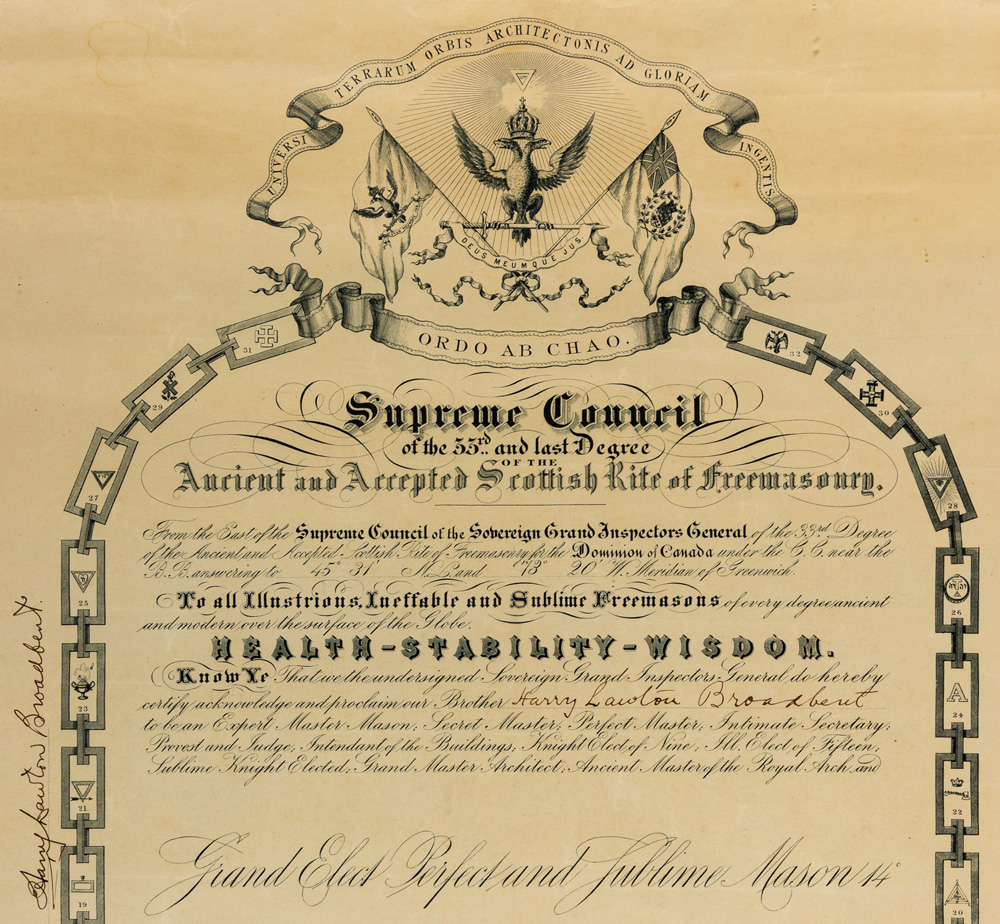 UNIVERSI TERRARUM ORBIS ARCHITECTONIS AD GLORIAM INGENTIS
DEUS MEUMQUE JUS
ORDO AB CHAO.
Supreme Council
of the 33rd. and last Degree
OF THE
Ancient and Accepted Scottish Rite of Freemasonry.
From the East of the Supreme Council of the Sovereign Grand Inspectors General of the 33rd Degree
of the Ancient and Accepted Scottish Rite of Freemasonry for the Dominion of Canada under the C.C. near the
B.B. answering to 45° 31' N.L. and 73° 20' W. Meridian of Greenwich.
To all Illustrious, Ineffable and Sublime Freemasons of every degree ancient
and modern over the surface of the Globe.
HEALTH-STABILITY-WISDOM.
Know Ye That we the undersigned Sovereign Grand Inspectors General do hereby
certify acknowledge and proclaim our Brother Harry Lawton Broadbent
to be an Expert Master Mason, Secret Master, Perfect Master, Intimate Secretary,
Provost and Judge, Intendant of the Buildings, Knight Elect of Nine, Ill. Elect of Fifteen,
Sublime Knight Elected, Grand Master Architect, Ancient Master of the Royal Arch and
Grand Elect Perfect and Sublime Mason 14°
31
29
27
25
23
21
19
32
30
28
26
A
24
22
20
Harry Lawton Broadbent.